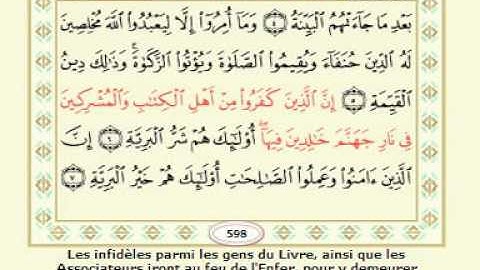 بَعۡدِ مَا جَآءَتۡهُمُ ٱلۡبَيِّنَةُ ٤ وَمَآ أُمِرُوٓاْ إِلَّا لِيَعۡبُدُواْ ٱللَّهَ مُخۡلِصِينَ
لَهُ ٱلدِّينَ حُنَفَآءَ وَيُقِيمُواْ ٱلصَّلَوٰةَ وَيُؤۡتُواْ ٱلزَّكَوٰةَۚ وَذَٰلِكَ دِينُ
ٱلۡقَيِّمَةِ ٥ إِنَّ ٱلَّذِينَ كَفَرُواْ مِنۡ أَهۡلِ ٱلۡكِتَٰبِ وَٱلۡمُشۡرِكِينَ
فِي نَارِ جَهَنَّمَ خَٰلِدِينَ فِيهَآۚ أُوْلَٰٓئِكَ هُمۡ شَرُّ ٱلۡبَرِيَّةِ ٦ إِنَّ
ٱلَّذِينَ ءَامَنُواْ وَعَمِلُواْ ٱلصَّٰلِحَٰتِ أُوْلَٰٓئِكَ هُمۡ خَيۡرُ ٱلۡبَرِيَّةِ ٧
598
Les infidèles parmi les gens du Livre, ainsi que les
Associateurs iront au feu de l'Enfer, pour y demeurer